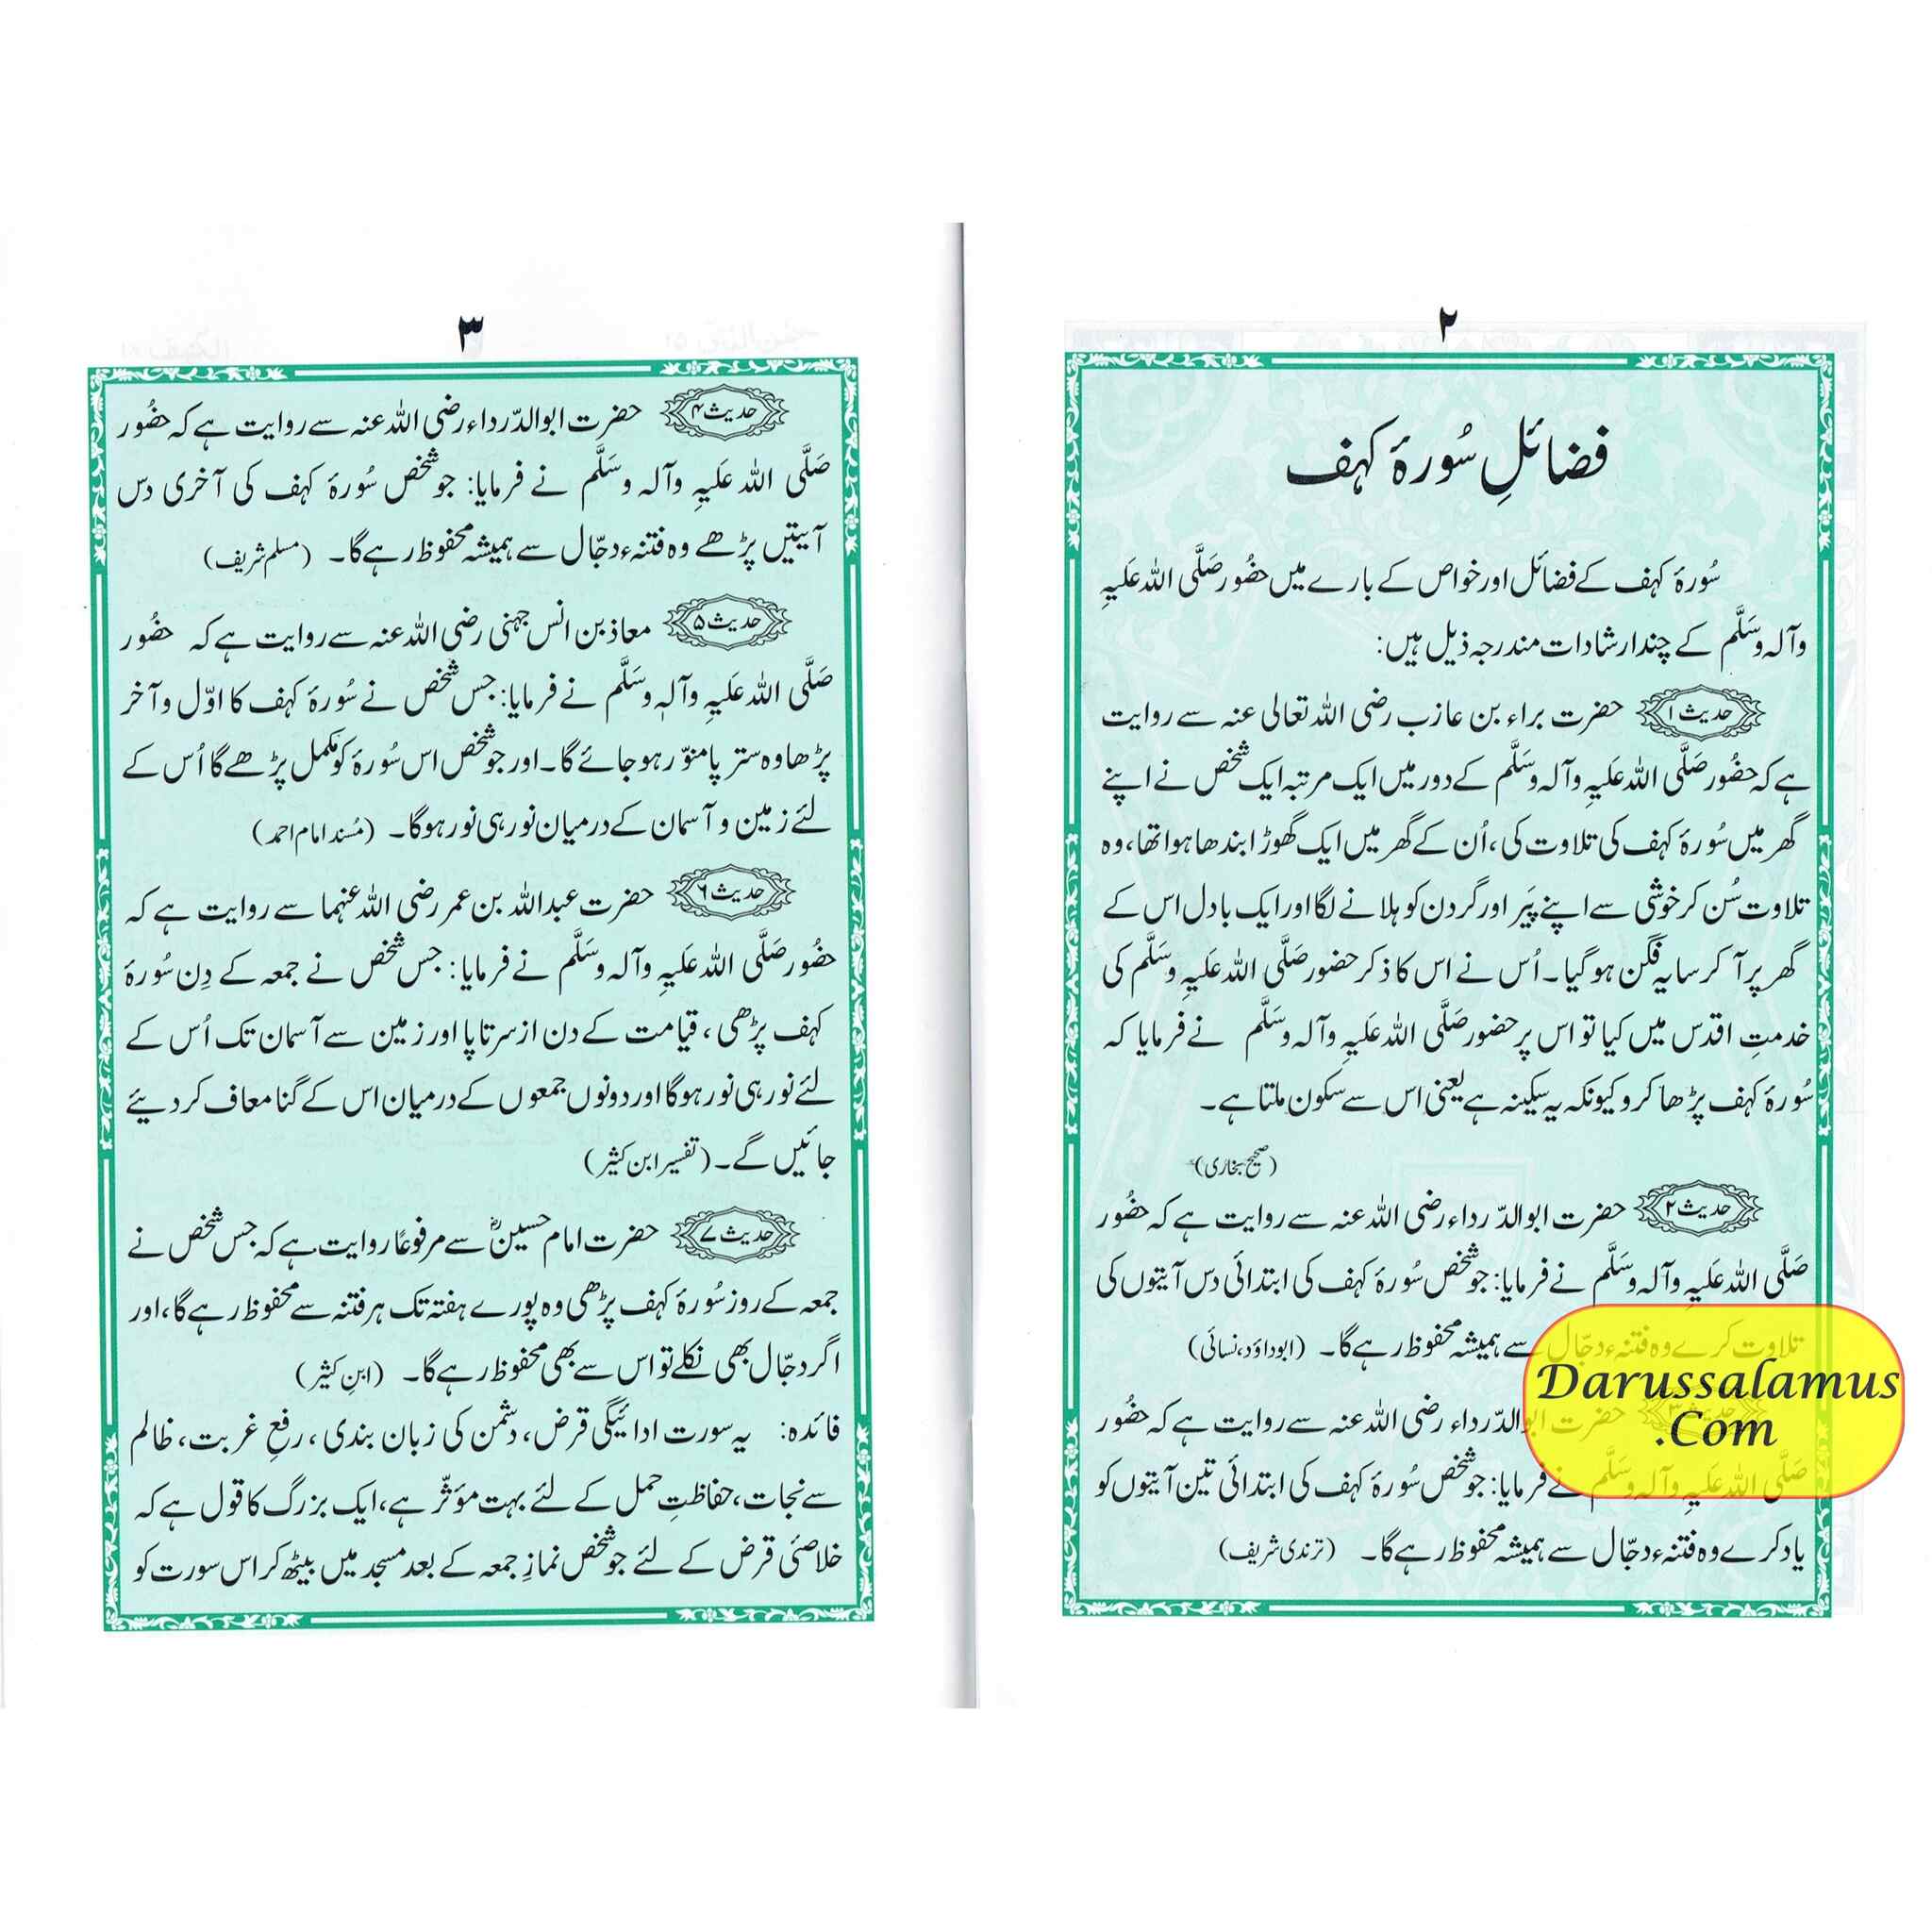 ۲
فضائلِ سُورۂ کہف
سُورۂ کہف کے فضائل اور خواص کے بارے میں حضُور صَلَّی اللہ عَلَیہِ
وآلہ وسَلَّم کے چند ارشادات مندرجہ ذیل ہیں:
حدیث ۱ حضرت براء بن عازب رضی اللہ تعالی عنہ سے روایت
ہے کہ حضُور صَلَّی اللہ عَلَیہِ وآلہ وسَلَّم کے دور میں ایک مرتبہ ایک شخص نے اپنے
گھر میں سُورۂ کہف کی تلاوت کی، اُن کے گھر میں ایک گھوڑا بندھا ہوا تھا، وہ
تلاوت سُن کر خوشی سے اپنے پَیر اور گردن کو ہلانے لگا اور ایک بادل اس کے
گھر پر آ کر سایہ فگن ہو گیا۔ اُس نے اس کا ذکر حضور صَلَّی اللہ عَلَیہِ وسَلَّم کی
خدمتِ اقدس میں کیا تو اس پر حضور صَلَّی اللہ عَلَیہِ وآلہ وسَلَّم نے فرمایا کہ
سُورۂ کہف پڑھا کرو کیونکہ یہ سکینہ ہے یعنی اس سے سکون ملتا ہے۔
(صحیح بخاری)
حدیث ۲ حضرت ابو الدّرداء رضی اللہ عنہ سے روایت ہے کہ حضُور
صَلَّی اللہ عَلَیہِ وآلہ وسَلَّم نے فرمایا: جو شخص سُورۂ کہف کی ابتدائی دس آیتوں کی
تلاوت کرے وہ فتنہء دجّال سے ہمیشہ محفوظ رہے گا۔ (ابوداؤد، نسائی)
حدیث ۳ حضرت ابو الدّرداء رضی اللہ عنہ سے روایت ہے کہ حضُور
صَلَّی اللہ عَلَیہِ وآلہ وسَلَّم نے فرمایا: جو شخص سُورۂ کہف کی ابتدائی تین آیتوں کو
یاد کرے وہ فتنہء دجّال سے ہمیشہ محفوظ رہے گا۔ (ترمذی شریف)
Darussalamus
.Com
۳
حدیث ۴ حضرت ابو الدّرداء رضی اللہ عنہ سے روایت ہے کہ حضُور
صَلَّی اللہ عَلَیہِ وآلہ وسَلَّم نے فرمایا: جو شخص سُورۂ کہف کی آخری دس
آیتیں پڑھے وہ فتنہء دجّال سے ہمیشہ محفوظ رہے گا۔ (مسلم شریف)
حدیث ۵ معاذ بن انس جہنی رضی اللہ عنہ سے روایت ہے کہ حضُور
صَلَّی اللہ عَلَیہِ وآلہٖ وسَلَّم نے فرمایا: جس شخص نے سُورۂ کہف کا اوّل و آخر
پڑھا وہ ستر پا منوّر ہو جائے گا۔ اور جو شخص اس سُورۂ کو مکمل پڑھے گا اُس کے
لئے زمین و آسمان کے درمیان نور ہی نور ہوگا۔ (مُسند امام احمد)
حدیث ۶ حضرت عبد اللہ بن عمر رضی اللہ عنہما سے روایت ہے کہ
حضُور صَلَّی اللہ عَلَیہِ وآلہ وسَلَّم نے فرمایا: جس شخص نے جمعہ کے دِن سُورۂ
کہف پڑھی، قیامت کے دن از سرتا پا اور زمین سے آسمان تک اُس کے
لئے نور ہی نور ہوگا اور دونوں جمعوں کے درمیان اس کے گنا معاف کر دیئے
جائیں گے۔ (تفسیر ابن کثیر)
حدیث ۷ حضرت امام حسینؓ سے مرفوعًا روایت ہے کہ جس شخص نے
جمعہ کے روز سُورۂ کہف پڑھی وہ پورے ہفتہ تک ہر فتنہ سے محفوظ رہے گا، اور
اگر دجّال بھی نکلے تو اس سے بھی محفوظ رہے گا۔ (ابنِ کثیر)
فائدہ: یہ سورت ادائیگی قرض، دشمن کی زبان بندی، رفعِ غربت، ظالم
سے نجات، حفاظتِ حمل کے لئے بہت مؤثّر ہے، ایک بزرگ کا قول ہے کہ
خلاصئی قرض کے لئے جو شخص نمازِ جمعہ کے بعد مسجد میں بیٹھ کر اس سورت کو